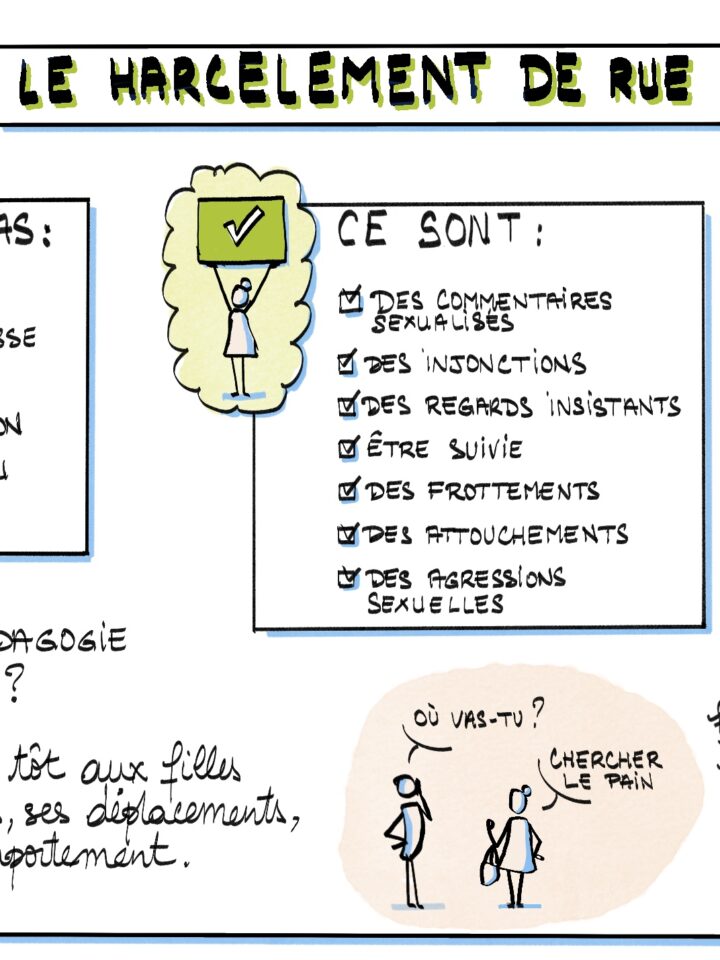 LE HARCELEMENT DE RUE
AS:
SSE
ON
CE SONT:
DES COMMENTAIRES
SEXUALISÉS
DES INJONCTIONS
DES REGARDS INSISTANTS
ÊTRE SUIVIE
DES FROTTEMENTS
DES ATTOUCHEMENTS
DES AGRESSIONS
SEXUELLES
DAGOGIE
?
tôt aux filles
, ses déplacements,
portement.
OÙ VAS-TU ?
CHERCHER
LE PAIN